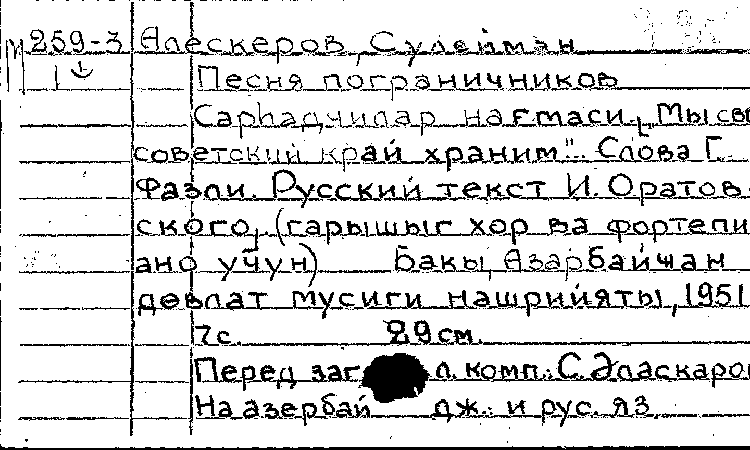 М 259-3 Алескеров, Сулейман
1↓ Песня пограничников
Сарһадчилар нағмаси. "Мы свы
советский край храним". Слова Г.
Фазли. Русский текст И. Оратов-
ского, (гарышыг хор ва фортепи
ано учун) Бакы, Азарбайҹан
девлат мусиги нашрийяты, 1951
7с. 29см.
Перед заг л. комп.: С. Әласкаров
На азербай дж. и рус. яз.